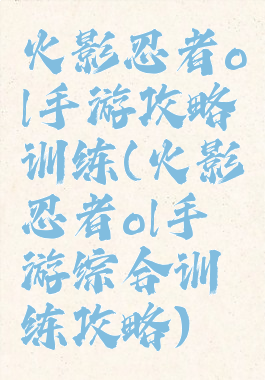 火影忍者o
l手游攻略
训练(火影
忍者ol手
游综合训
练攻略)